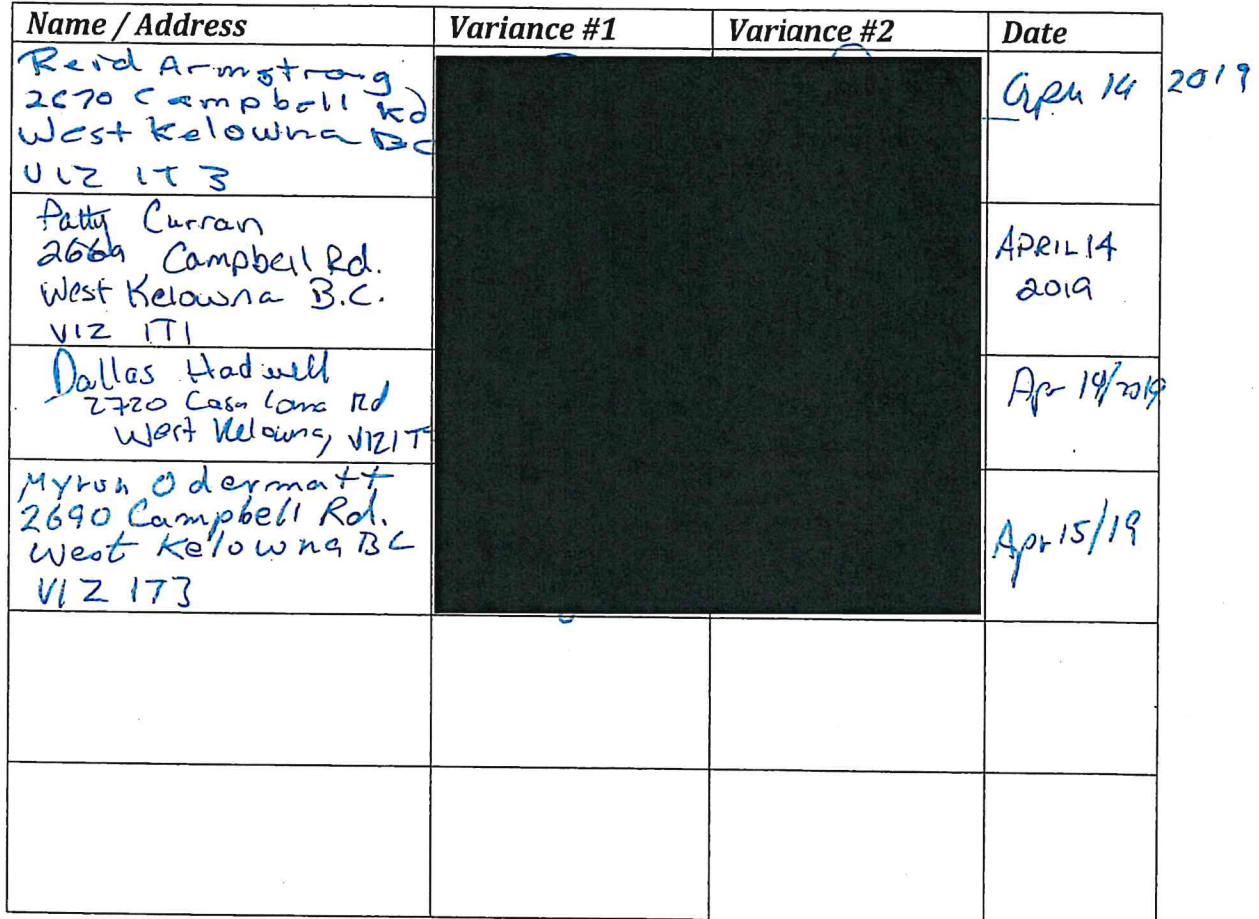 Name / Address Variance #1 Variance #2 Date
Reid Armstrong
2670 Campbell Rd
West Kelowna BC
V1Z 1T3
April 14 2019
Patty Curran
Campbell Rd.
West Kelowna B.C.
V1Z 1T1
APRIL 14
2019
Dallas Hadwell
2720 Casa Loma Rd
West Kelowna, V1Z1T
Apr 14/2019
Myron Odermatt
2690 Campbell Rd.
West Kelowna BC
V1Z 1T3
Apr 15/19